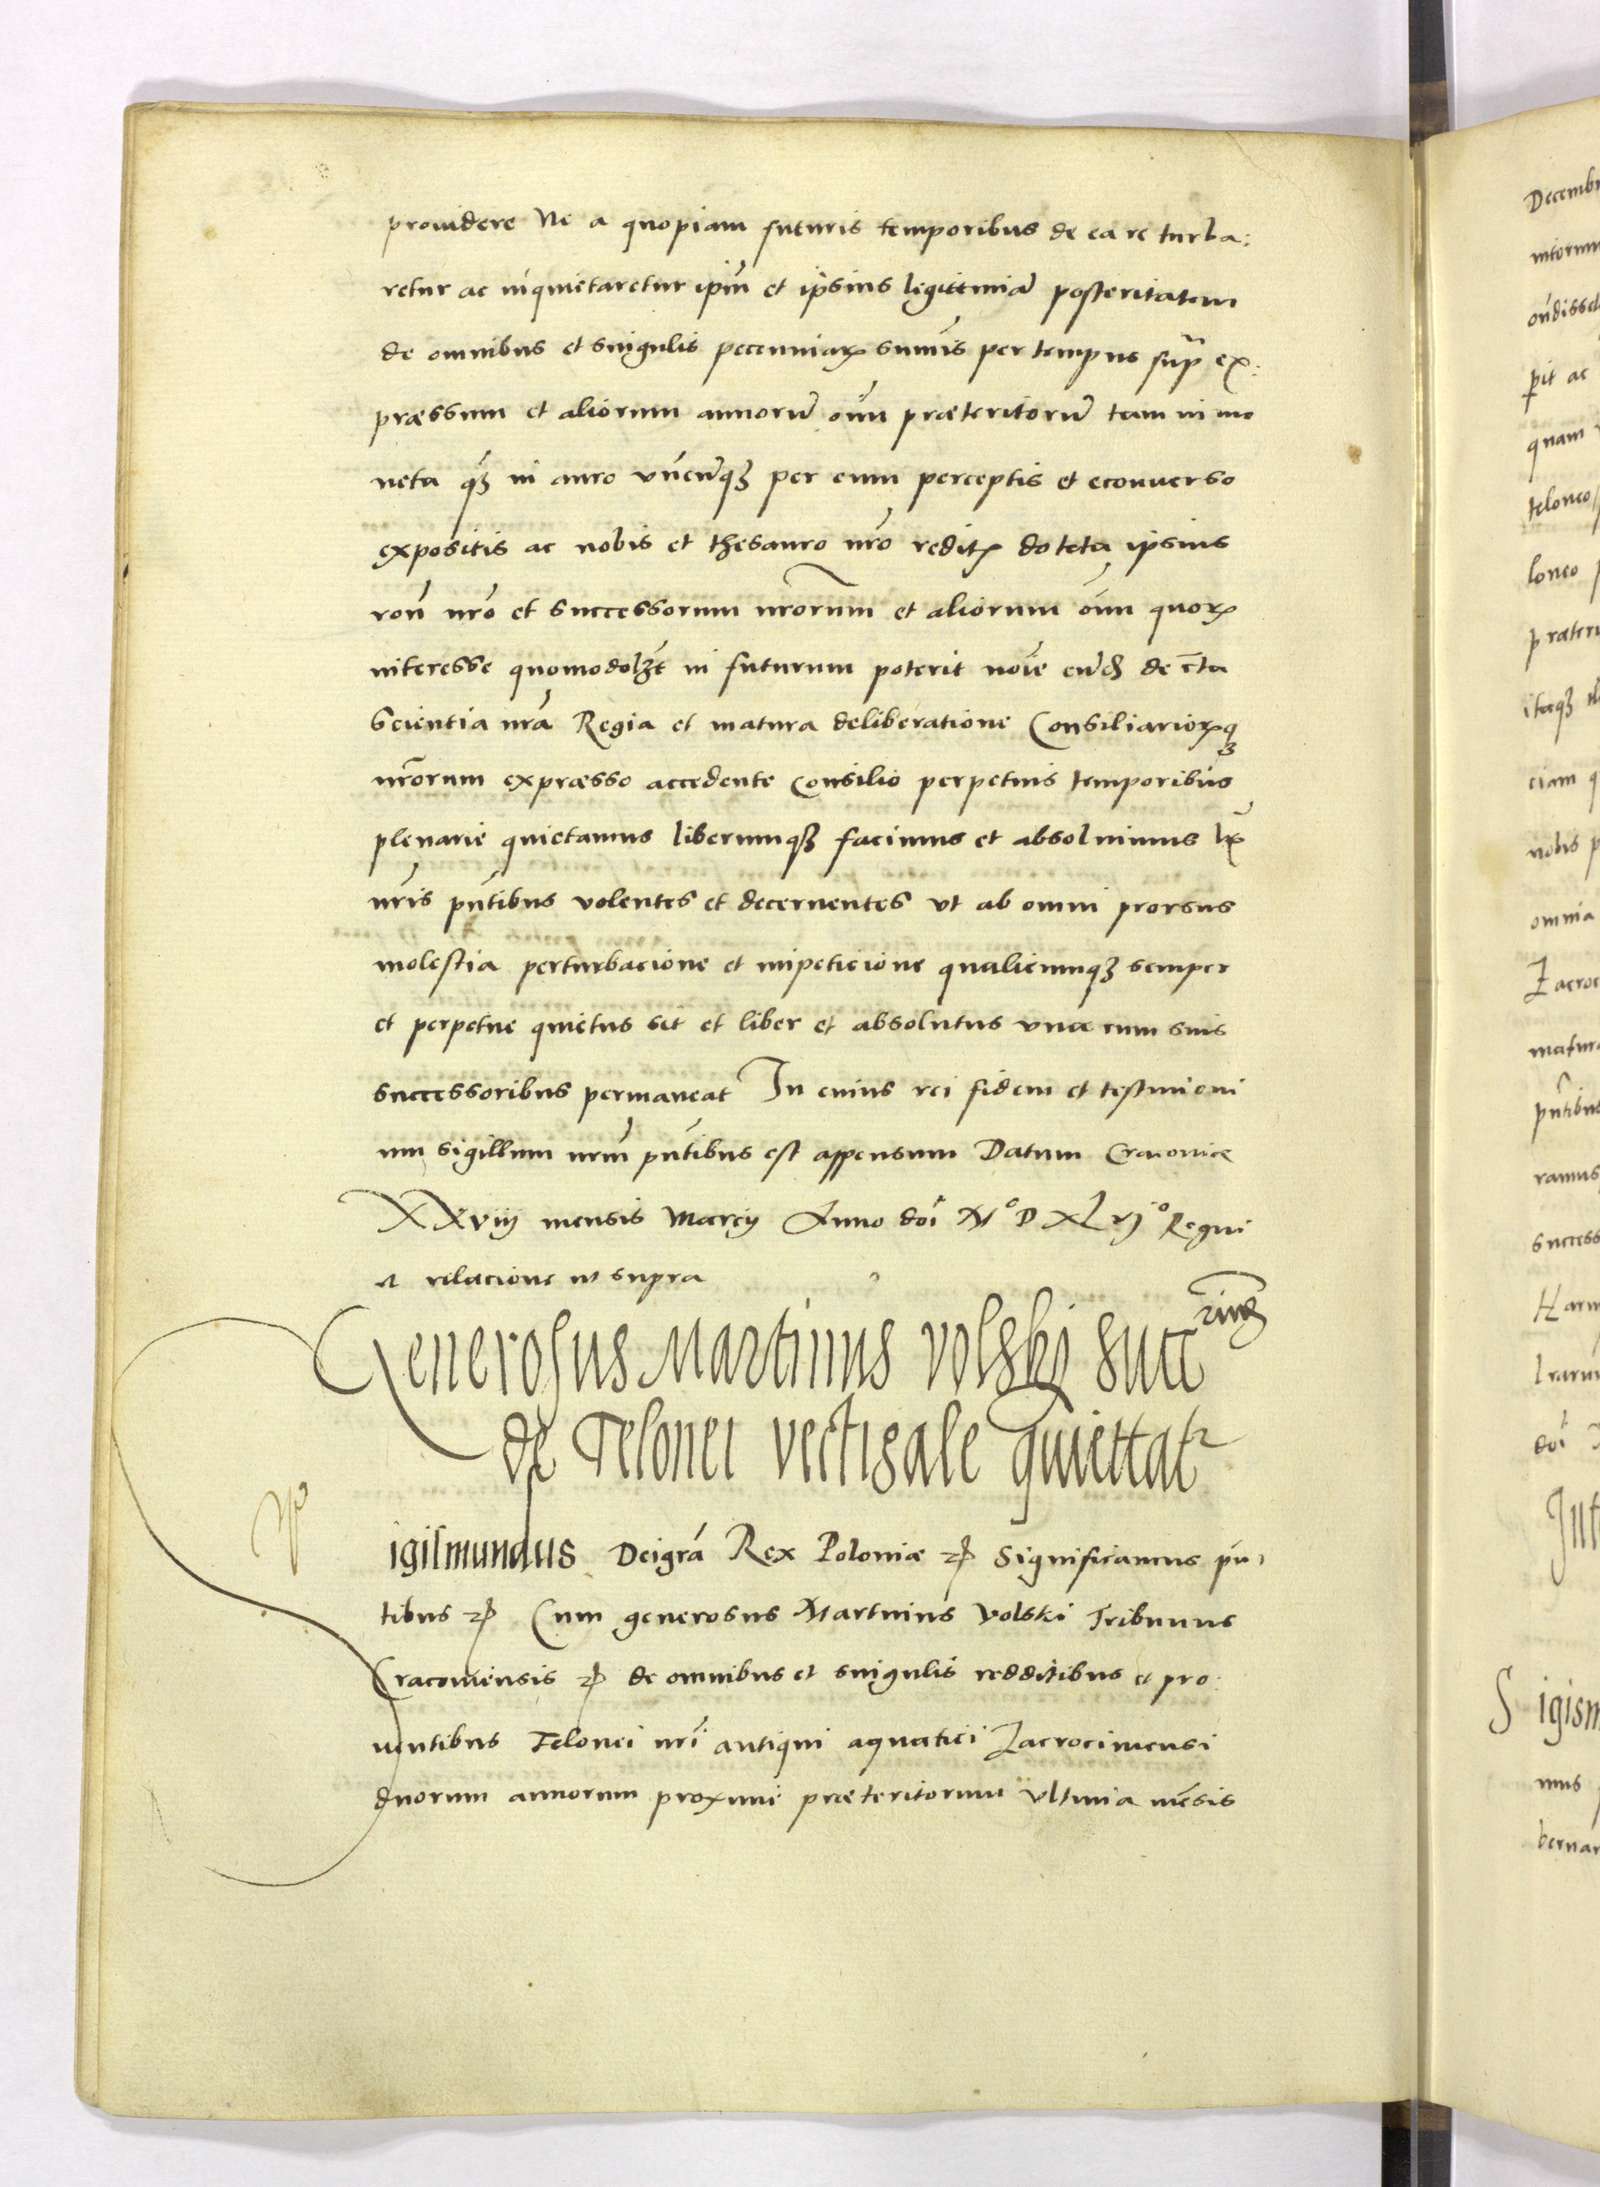 prouidere Ne a quopiam futuris temporibus de ea re turba:
retur ac inquietaretur ipm̄ et ipsius legittimā posteritatem
de omnibus et singulis pecuniarꝝ sum̄is per tempus supᷓ ex:
præssum et aliorum annorū om̄ præteritorū tam in mo
neta qᷓꝫ in auro vn̄cūqꝫ per eum perceptis et econuerso
expositis ac nobis et thesauro nr̄o redditꝝ de tota ipsius
ron̄ nr̄o et successorum nr̄orum et aliorum om̄ quorꝝ
interesse quomodolꝫt in futurum poterit noīe eūdꝫ de c̄ta
Scientia nr̄a Regia et matura deliberatione Consiliariorꝝqꝫ
nr̄orum expræsso accedente Consilio perpetuis temporibus
plenarie quietamus liberumqꝫ facimus et absoluimus lr̄
nr̄is pn̄tibus volentes et decernentes vt ab omni prorsus
molestia perturbacione et impeticione qualicumqꝫ semper
et perpetue quietus sit et liber et absolutus vna cum suis
successoribus permaneat In cuius rei fidem et testimoni
um sigillum nr̄m pn̄tibus est appensum Datum Cracouiæ
XXviij mensis Marcij Anno doī Mº D XLvjº Regni
et relacione vt supra
Generosus Martinus Volskj succ
de Telonei vectigale quiettatr
igismundus Dei gr̄a Rex Poloniæ ꝛꝭ Significamus pn̄
tibus ꝛꝭ Cum generosus Martinus Volski Tribunus
Cracouiensis ꝛꝭ de omnibus et singulis redditibus et pro:
uentibus Telonei nr̄i antiqui aquatici Zacrocimensi
duorum annorum proxime præteritorum vltima mēsis
Decemb
quam
teloneo
loneo
itaqꝫ
ciam
nobis
omnia
Zacroc
pn̄tibus
ramus
success
doī
Int
S igism
mus